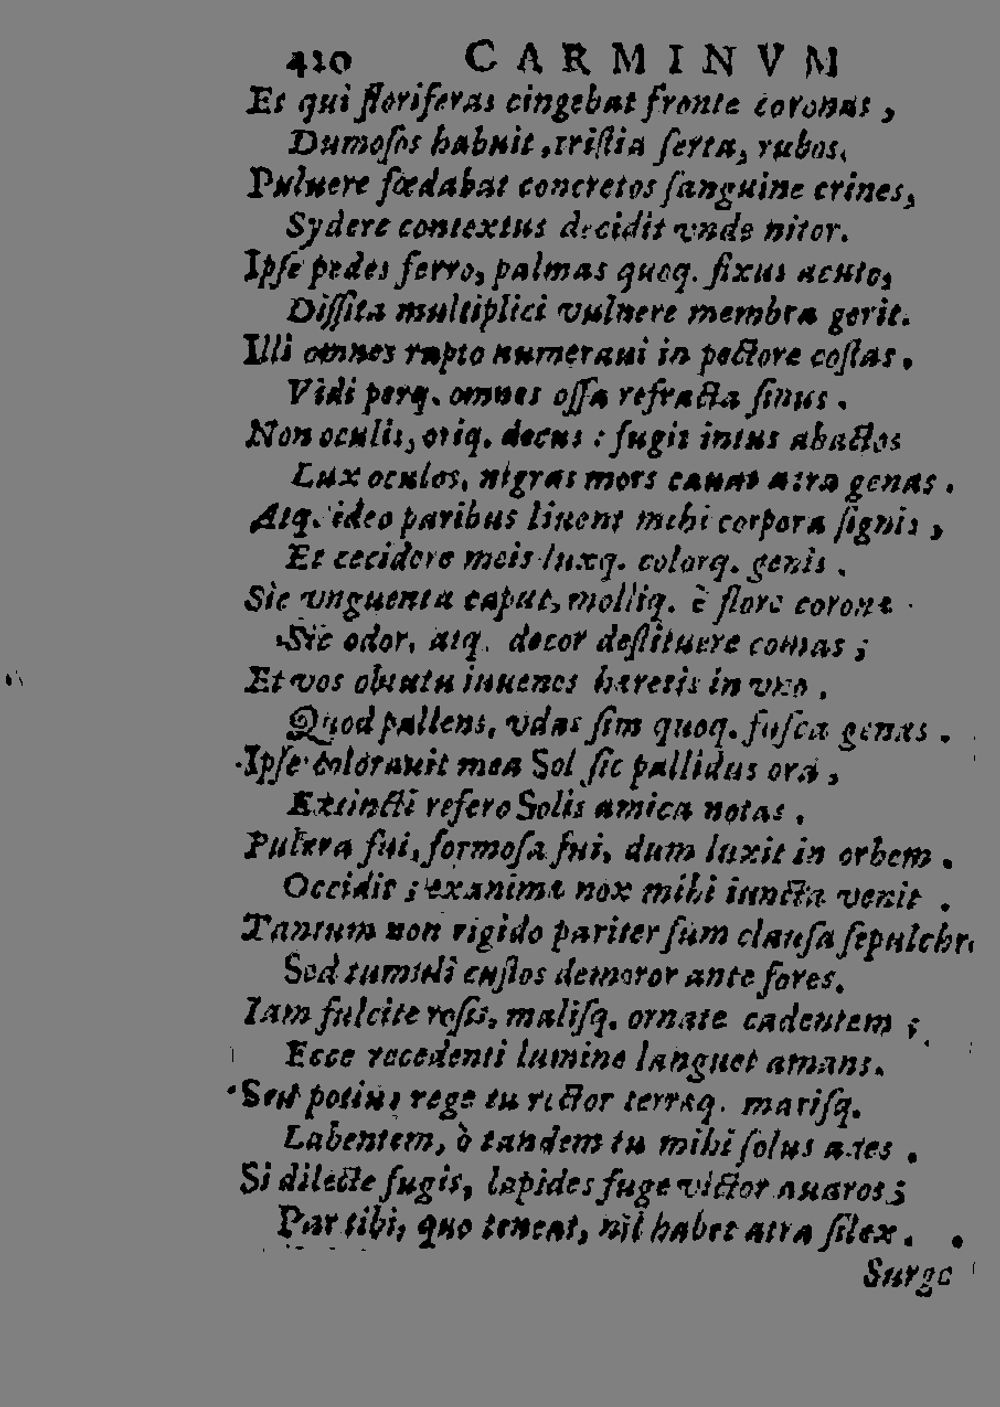 420 CARMINVM
Et qui floriferas cingebat fronte coronas,
Dumosos habuit, tristia serta, rubos.
Puluere fœdabat concretos sanguine crines,
Sydere contextus decidit vnde nitor.
Ipse pedes ferro, palmas quoq. fixus acuto,
Dissita multiplici vulnere membra gerit.
Illi omnes rapto numeraui in pectore costas.
Vidi perq. omnes ossa refracta sinus.
Non oculis, oriq. decus: fugit intus abactos
Lux oculos, nigras mors cauat atra genas.
Atq. ideo paribus liuent mihi corpora signis,
Et cecidere meis luxq. colorq. genis.
Sic vnguenta caput, molliq. è flore coronæ
Sic odor, atq. decor destituere comas;
Et vos obtutu iuuenes hæretis in vno,
Quod pallens, vdas sim quoq. fusca genas.
Ipse colorauit mea Sol sic pallidus ora,
Extincti refero Solis amica notas.
Pulcra fui, formosa fui, dum luxit in orbem.
Occidit; exanimæ nox mihi iuncta venit.
Tantum non rigido pariter sum clausa sepulchro
Sed tumuli custos demoror ante fores.
Iam fulcite rosis, malisq. ornate cadentem;
Ecce recedenti lumine languet amans.
Seu potius rege tu rector terræq. marisq.
Labentem, ò tandem tu mihi solus ades.
Si dilecte fugis, lapides fuge victor auaros;
Par tibi, quo teneat, nil habet atra silex.
Surge